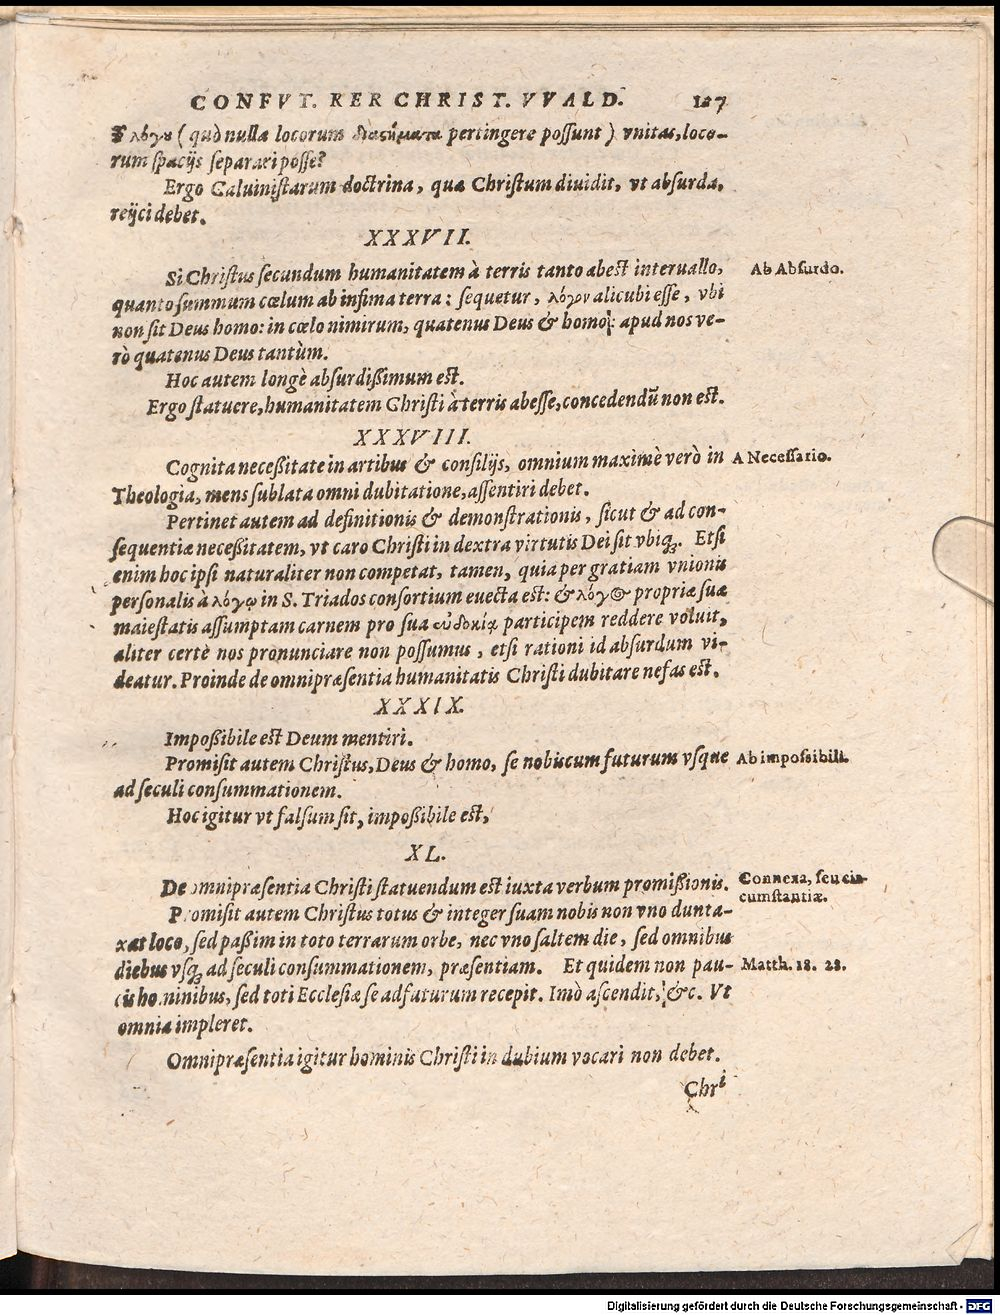 CONFVT. RER CHRIST. VVALD. 127
λόγου (quò nulla locorum διαστήματα pertingere possunt) vnitas, loco-
rum spacijs separari posse?
Ergo Caluinistarum doctrina, quæ Christum diuidit, vt absurda,
reijci debet.
XXXVII.
Si Christus secundum humanitatem à terris tanto abest interuallo,
Ab Absurdo.
quanto summum cœlum ab infima terra: sequetur, λόγον alicubi esse, vbi
non sit Deus homo: in cœlo nimirum, quatenus Deus & homo: apud nos ve-
rò quatenus Deus tantùm.
Hoc autem longè absurdißimum est.
Ergo statuere, humanitatem Christi à terris abesse, concedendũ non est.
XXXVIII.
Cognita neceßitate in artibus & consilijs, omnium maximè verò in
A Necessario.
Theologia, mens sublata omni dubitatione, assentiri debet.
Pertinet autem ad definitionis & demonstrationis, sicut & ad con-
sequentiæ neceßitatem, vt caro Christi in dextra virtutis Dei sit vbiq;. Etsi
enim hoc ipsi naturaliter non competat, tamen, quia per gratiam vnionis
personalis à λόγῳ in S. Triados consortium euecta est: & λόγος propriæ suæ
maiestatis assumptam carnem pro sua εὐδοκίᾳ participem reddere voluit,
aliter certè nos pronunciare non possumus, etsi rationi id absurdum vi-
deatur. Proinde de omnipræsentia humanitatis Christi dubitare nefas est.
XXXIX.
Impoßibile est Deum mentiri.
Promisit autem Christus, Deus & homo, se nobiscum futurum vsque
Ab impossibili.
ad seculi consummationem.
Hoc igitur vt falsum sit, impoßibile est,
XL.
De omnipræsentia Christi statuendum est iuxta verbum promißionis.
Connexa, seu cir-
cumstantiæ.
Promisit autem Christus totus & integer suam nobis non vno dunta-
xat loco, sed paßim in toto terrarum orbe, nec vno saltem die, sed omnibus
diebus vsq; ad seculi consummationem, præsentiam. Et quidem non pau-
Matth. 18. 28.
cis hominibus, sed toti Ecclesiæ se adfuturum recepit. Imò ascendit, &c. Vt
omnia impleret.
Omnipræsentia igitur hominis Christi in dubium vocari non debet.
Chri
Digitalisierung gefördert durch die Deutsche Forschungsgemeinschaft - DFG